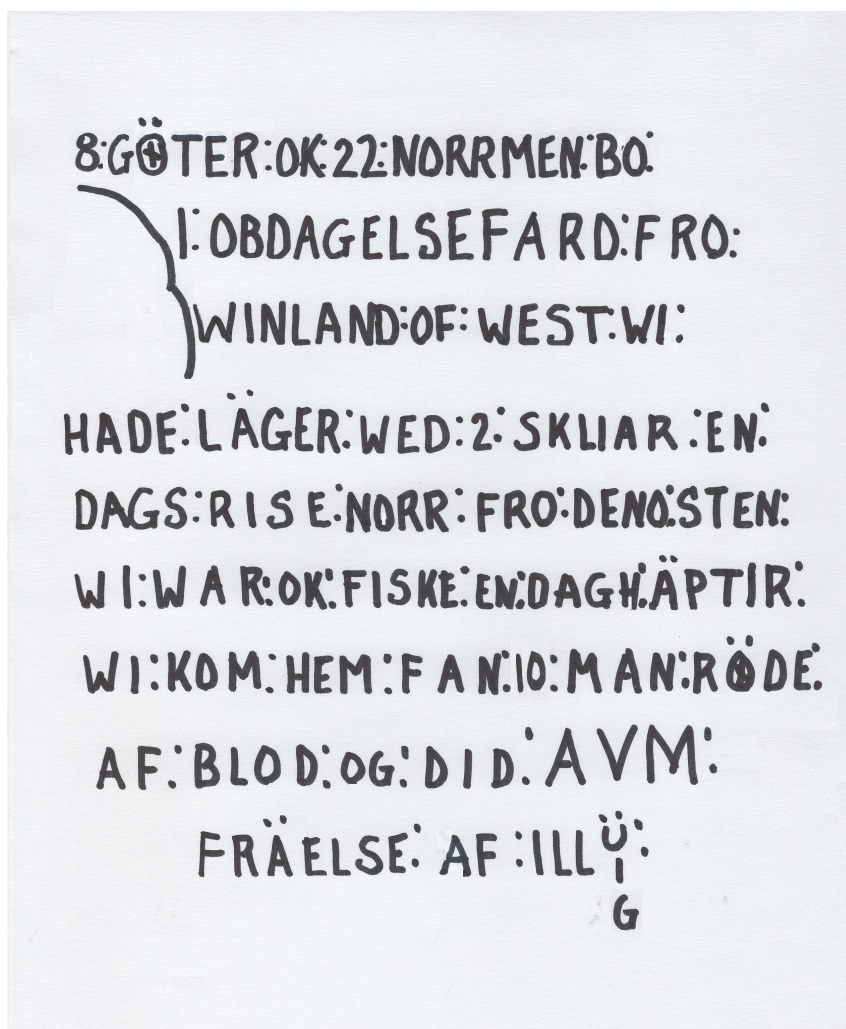 8:GÖTER:OK:22:NORRMEN:BO:
I:OBDAGELSEFARD:FRO:
WINLAND:OF:WEST:WI:
HADE:LÄGER:WED:2:SKLIAR:EN:
DAGS:RISE:NORR:FRO:DENO:STEN:
WI:WAR:OK:FISKE:EN:DAGH:ÄPTIR:
WI:KOM:HEM:FAN:10:MAN:RÖDE:
AF:BLOD:OG:DID:AVM:
FRÄELSE:AF:ILLÜ:
I
G